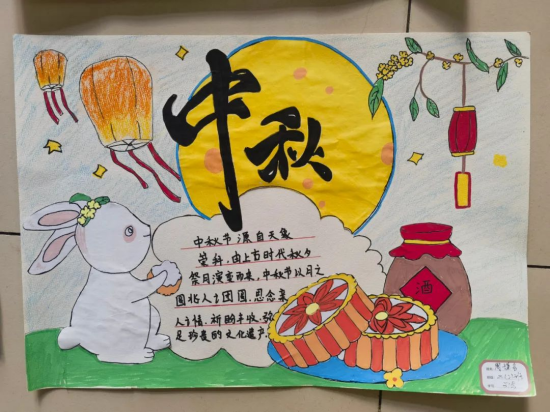 中秋
中秋节源自天象
崇拜,由上古时代秋夕
祭月演变而来,中秋节以月之
圆兆人之团圆,思念亲
人之情,祈盼丰收、
是珍贵的文化遗产。
酒